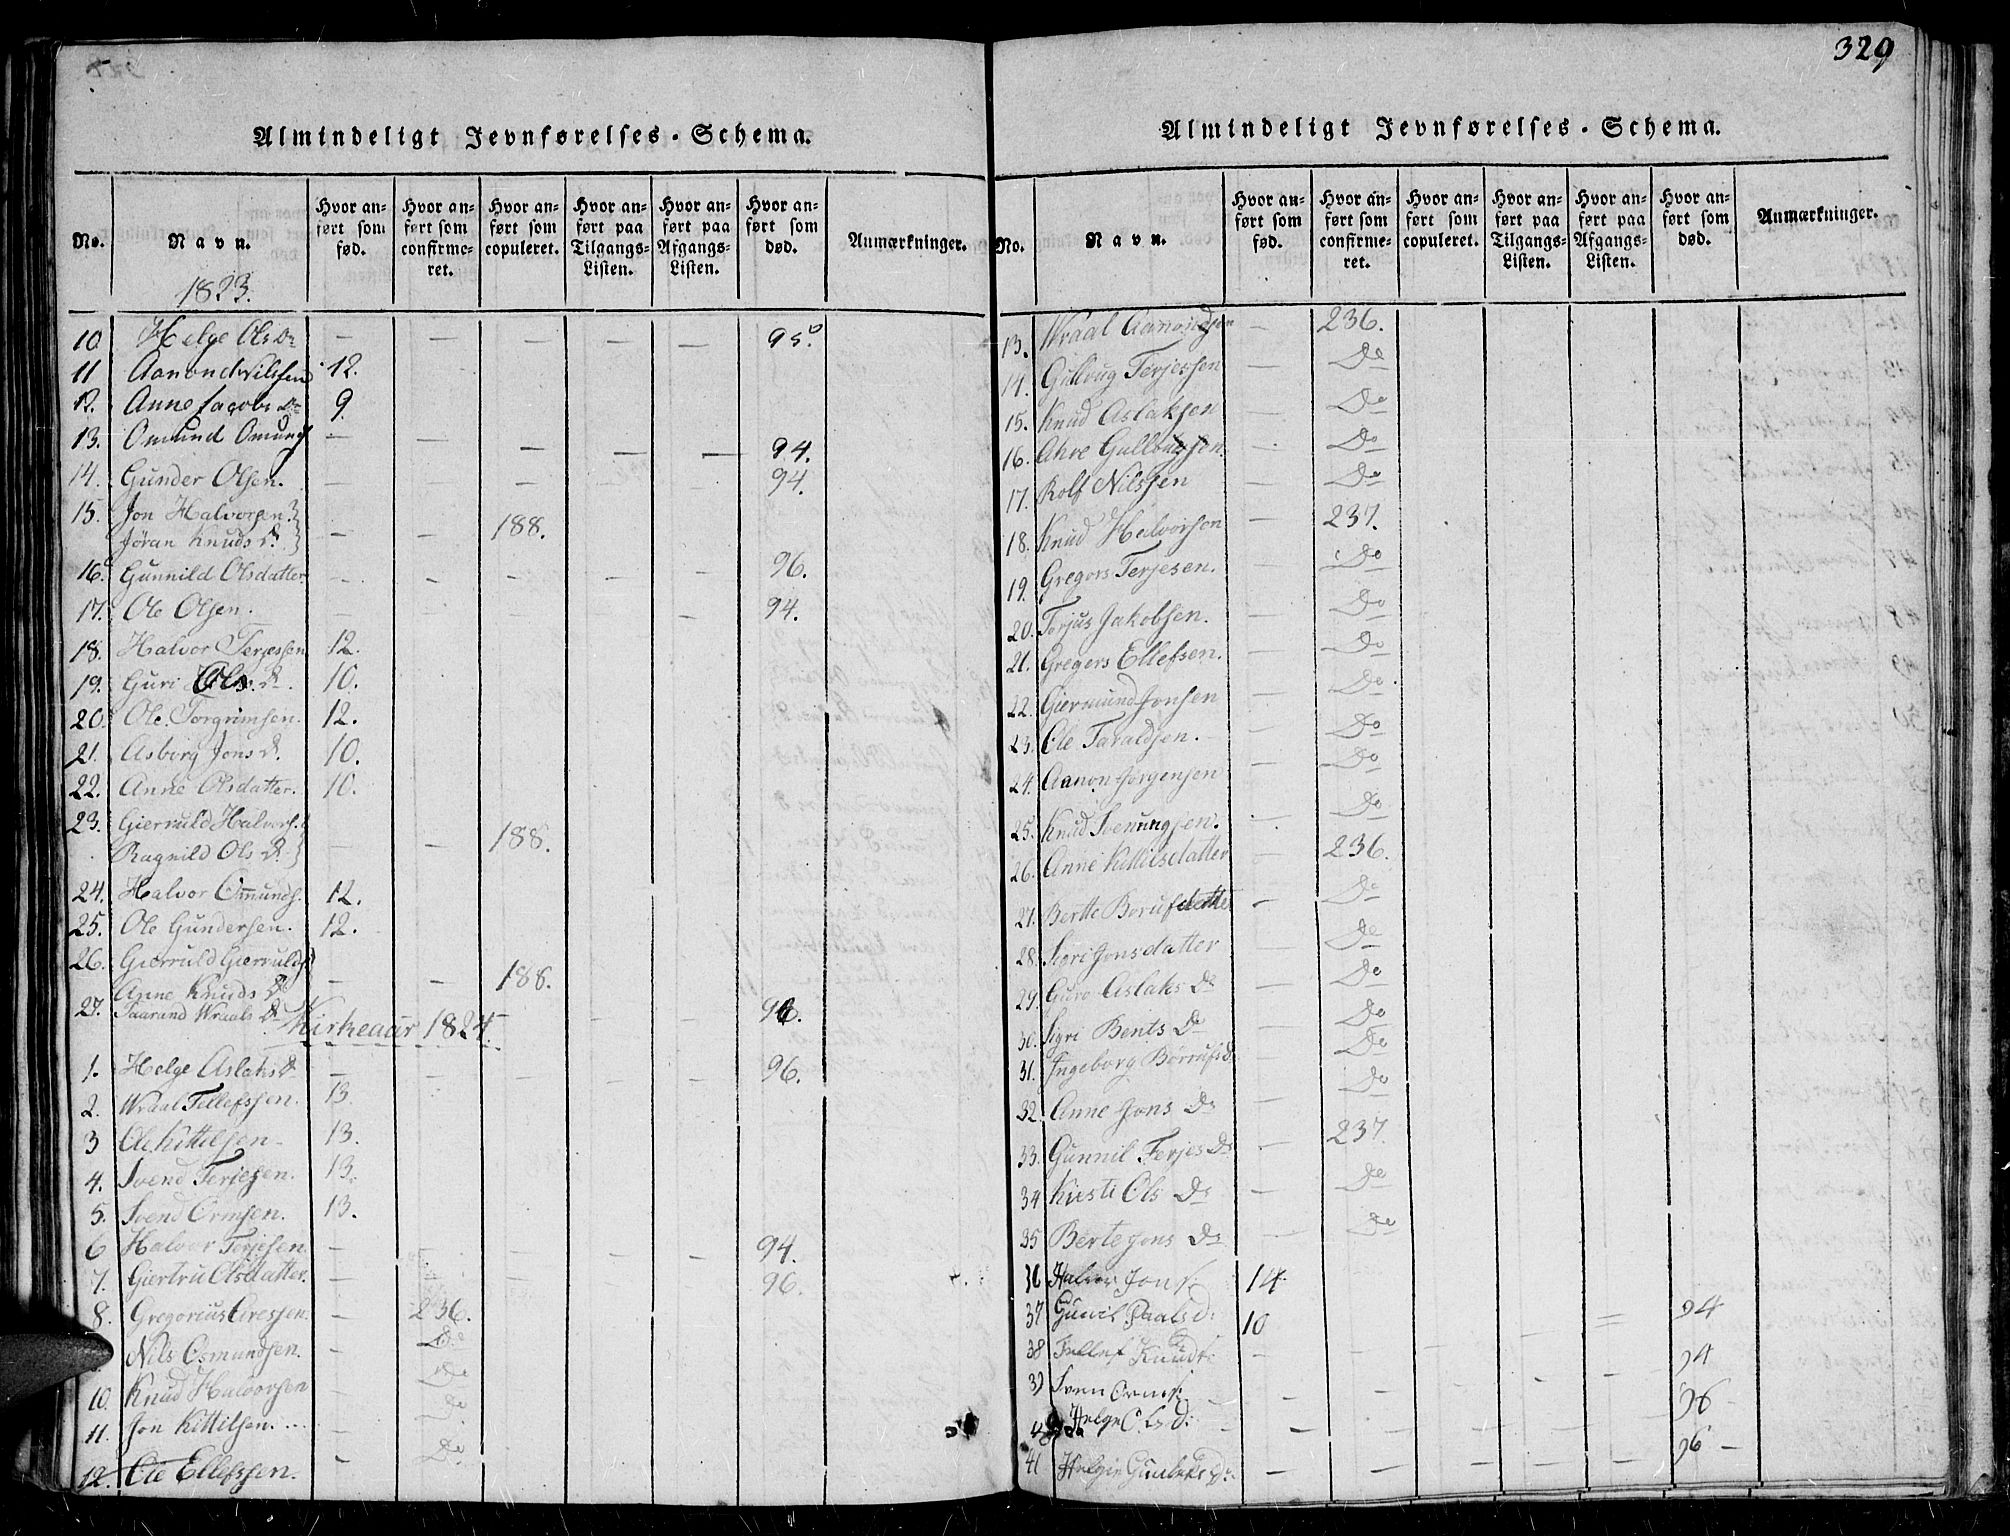 329
Almindeligt Jevnførelses-Schema.
No. Navn. Hvor anført som fød. Hvor anført som confirmeret. Hvor anført som copuleret. Hvor anført paa Tilgangs-Listen. Hvor anført paa Afgangs-Listen. Hvor anført som død. Anmærkninger.
1823.
10. Helge Ols Dr — — — — — 95.
11 Aanond Nilssen 12.
12. Anne Jacobs Dr 9.
13. Omund Omunds — — — — — 94.
14. Gunder Olsen. — — 94.
15. Jon Halvorsen.
Jøran Knuds D. — — 188.
16. Gunnild Olsdatter — — — — — 96.
17. Ole Olsen. — — 94.
18. Halvor Terjessen 12.
19. Guri Ols. D. 10.
20. Ole Torgrimsen. 12.
21. Asborg Jons D. 10.
22. Anne Olsdatter. 10.
23. Gierruld Halvors.
Ragnild Ols D. — — 188.
24. Halvor Omunds. 12.
25. Ole Gundersen. 12.
26. Gierruld Gierrulds
Anne Knuds D. — — 188.
27. Taarand Wraals D — — — — 96.
Kirkeaar 1824.
1. Helge Aslaks D — — — — — 96.
2. Wraal Tellefssen. 13.
3 Ole Kittelsen 13.
4. Svend Teriesen. 13.
5. Svend Ormsen. 13.
6 Halvor Terjesen. — — — 94.
7. Giertru Olsdatter. — — — — — 96.
8. Gregorius Aresen. — 236.
Nils Osmundsen. — Do
10. Knud Halvorsen — Do
11. Jon Kittilsen. — Do
12. Ole Ellefssen. — Do
Almindeligt Jevnførelses-Schema.
No. Navn. Hvor anført som fød. Hvor anført som confirmeret. Hvor anført som copuleret. Hvor anført paa Tilgangs-Listen. Hvor anført paa Afgangs-Listen. Hvor anført som død. Anmærkninger.
13. Wraal Aanondsen — 236.
14. Gullbug Terjessen — Do
15. Knud Aslaksen — Do
16. Ahve Gullbugsen. — Do
17. Rolf Nilssen — Do
18. Knud Helvorsen — 237.
19. Gregors Terjesen. — Do
20. Terjus Jakobsen. — Do
21. Gregers Ellefsen. — Do
22. Giermund Jonsen — Do
23. Ole Taraldsen. — Do
24. Aanon Jorgensen — Do
25. Knud Svenungsen. — Do
26. Anne Kittilsdatter — 236.
27. Bertte Børufsdatter — Do
28. Sigri Jonsdatter — Do
29. Guro Aslaks Dr — Do
30. Sigri Bents Dr — Do
31. Ingeborg Børrufsd. — Do
32. Anne Jons Dr — Do
33. Gunnil Terjes Dr — 237.
34 Kirsti Ols Dr — Do
35 Berte Jons Dr — Do
36 Halvor Jons. 14.
37 Gunil Paals D: 10 94
38 Tellef Knuds: — — — 94
39 Sven Orms: — — — — — 96
40 Helge Ols D: — — 96 —
41 Helgie Gunleks Dr: — — — — —